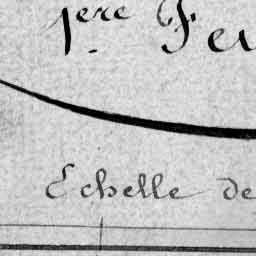 1ère Feu
Echelle de